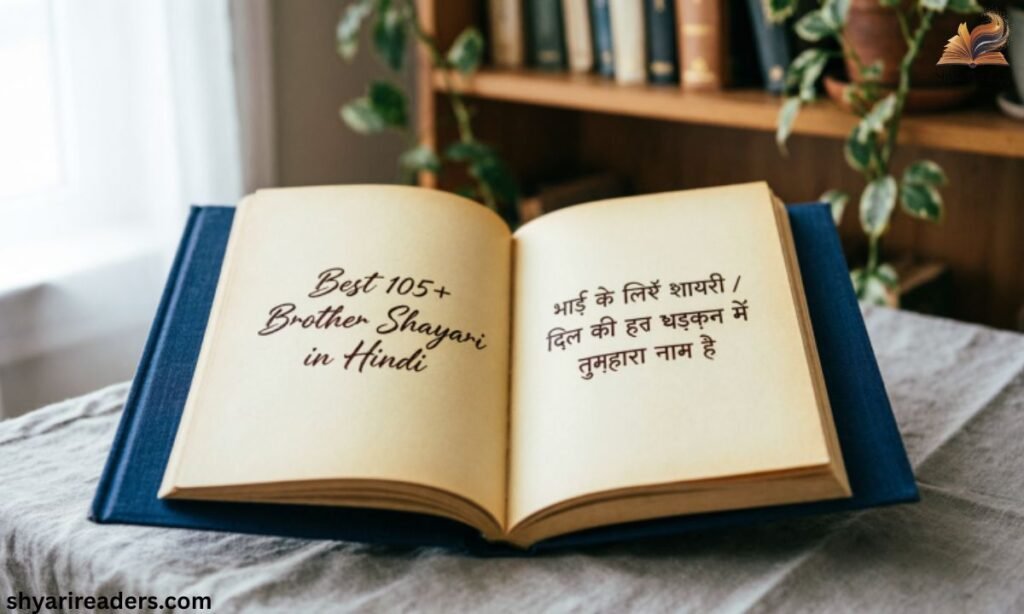 Best 105+
Brother Shayari
in Hindi
भाई़ के लिऍ शायरी /
दि़ल की हत धड़क़न में
तुम़हारा नाम है
shyarireaders.com